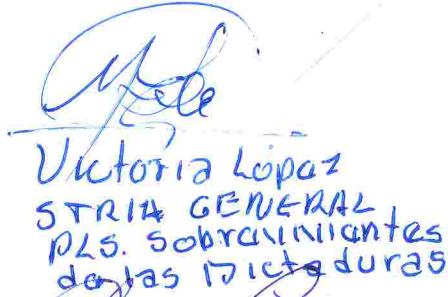 Victoria López
STRIA GENERAL
PLS. Sobrevivientes
de las Dictaduras